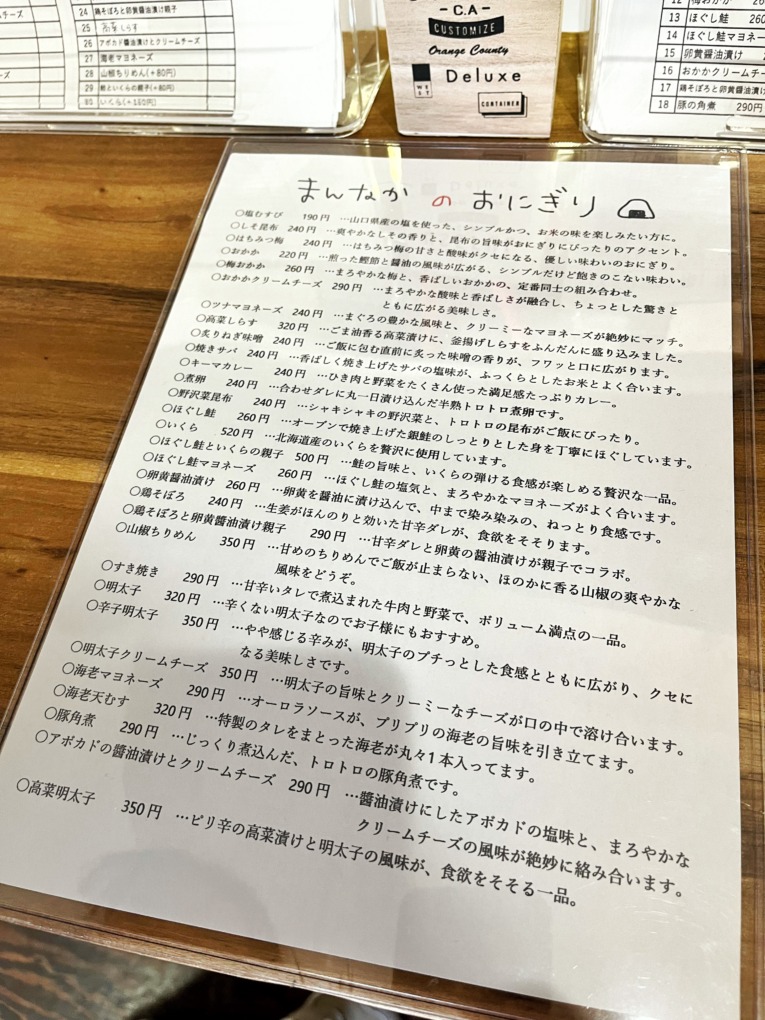 24 鶏そぼろと卵黄醤油漬け親子
25 高菜しらす
26 アボカド醤油漬けとクリームチーズ
27 海老マヨネーズ
28 山椒ちりめん(+80円)
29 鮭といくらの親子(+80円)
30 いくら(+150円)
C.A
CUSTOMIZE
Orange County
Deluxe
WEST
CONTAINER
12 梅おかか 260
13 ほぐし鮭 260
14 ほぐし鮭マヨネー
15 卵黄醤油漬け
16 おかかクリームチー
17 鶏そぼろと卵黄醤油漬け
18 豚の角煮 290円
まんなか の おにぎり
○塩むすび 190円 …山口県産の塩を使った、シンプルかつ、お米の味を楽しみたい方に。
○しそ昆布 240円 …爽やかなしその香りと、昆布の旨味がおにぎりにぴったりのアクセント。
○はちみつ梅 240円 …はちみつ梅の甘さと酸味がクセになる、優しい味わいのおにぎり。
○おかか 220円 …煎った鰹節と醤油の風味が広がる、シンプルだけど飽きのこない味わい。
○梅おかか 260円 …まろやかな梅と、香ばしいおかかの、定番同士の組み合わせ。
○おかかクリームチーズ 290円 …まろやかな酸味と香ばしさが融合し、ちょっとした驚きと
ともに広がる美味しさ。
○ツナマヨネーズ 240円 …まぐろの豊かな風味と、クリーミーなマヨネーズが絶妙にマッチ。
○高菜しらす 320円 …ごま油香る高菜漬けに、釜揚げしらすをふんだんに盛り込みました。
○炙りねぎ味噌 240円 …ご飯に包む直前に炙った味噌の香りが、フワッと口に広がります。
○焼きサバ 240円 …香ばしく焼き上げたサバの塩味が、ふっくらとしたお米とよく合います。
○キーマカレー 240円 …ひき肉と野菜をたくさん使った満足感たっぷりカレー。
○煮卵 240円 …合わせダレに丸一日漬け込んだ半熟トロトロ煮卵です。
○野沢菜昆布 240円 …シャキシャキの野沢菜と、トロトロの昆布がご飯にぴったり。
○ほぐし鮭 260円 …オーブンで焼き上げた銀鮭のしっとりとした身を丁寧にほぐしています。
○いくら 520円 …北海道産のいくらを贅沢に使用しています。
○ほぐし鮭といくらの親子 500円 …鮭の旨味と、いくらの弾ける食感が楽しめる贅沢な一品。
○ほぐし鮭マヨネーズ 260円 …ほぐし鮭の塩気と、まろやかなマヨネーズがよく合います。
○卵黄醤油漬け 260円 …卵黄を醤油に漬け込んで、中まで染み染みの、ねっとり食感です。
○鶏そぼろ 240円 …生姜がほんのりと効いた甘辛ダレが、食欲をそそります。
○鶏そぼろと卵黄醤油漬け親子 290円 …甘辛ダレと卵黄の醤油漬けが親子でコラボ。
○山椒ちりめん 350円 …甘めのちりめんでご飯が止まらない、ほのかに香る山椒の爽やかな
風味をどうぞ。
○すき焼き 290円 …甘辛いタレで煮込まれた牛肉と野菜で、ボリューム満点の一品。
○明太子 320円 …辛くない明太子なのでお子様にもおすすめ。
○辛子明太子 350円 …やや感じる辛みが、明太子のプチっとした食感とともに広がり、クセに
なる美味しさです。
○明太子クリームチーズ 350円 …明太子の旨味とクリーミーなチーズが口の中で溶け合います。
○海老マヨネーズ 290円 …オーロラソースが、プリプリの海老の旨味を引き立てます。
○海老天むす 320円 …特製のタレをまとった海老が丸々1本入ってます。
○豚角煮 290円 …じっくり煮込んだ、トロトロの豚角煮です。
○アボカドの醬油漬けとクリームチーズ 290円 …醬油漬けにしたアボカドの塩味と、まろやかな
クリームチーズの風味が絶妙に絡み合います。
○高菜明太子 350円 …ピリ辛の高菜漬けと明太子の風味が、食欲をそそる一品。